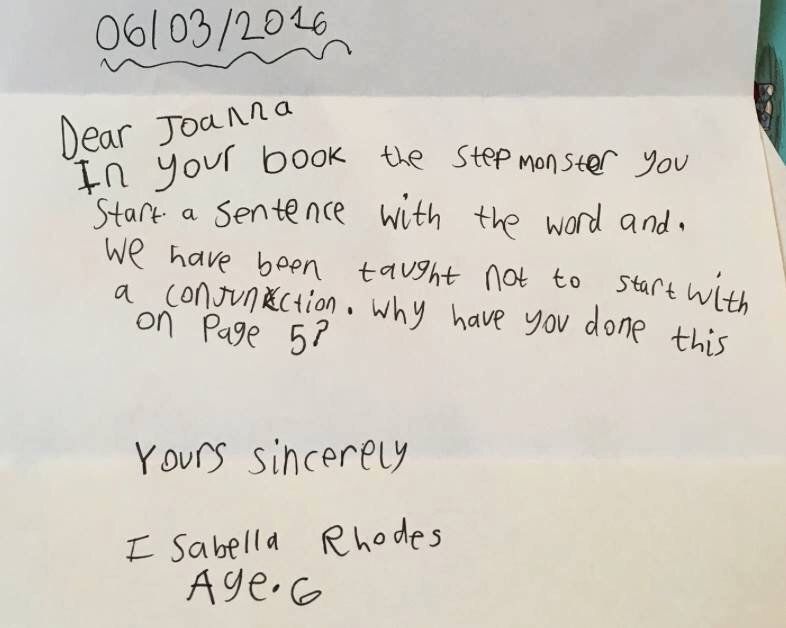 06/03/2016
Dear Joanna
In your book the stepmonster you
start a sentence with the word and.
We have been taught not to start with
a conjunction. Why have you done this
on Page 5?
Yours sincerely
Isabella Rhodes
Age. 6